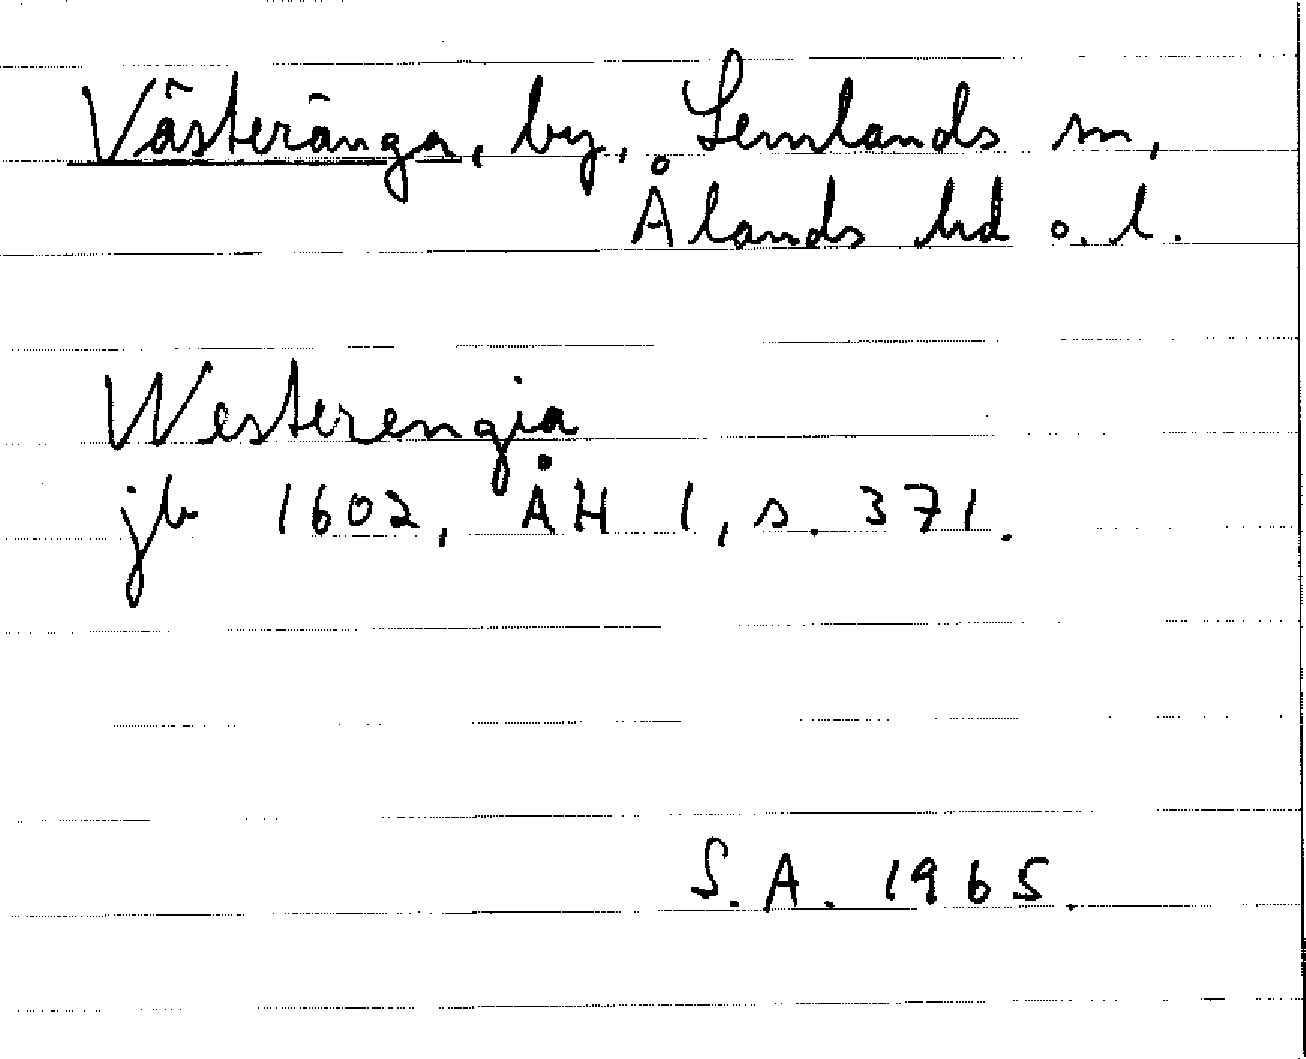 Västeränga, by, Lemlands sn,
Ålands hd o. l.
Westerengia
jb 1602, ÅH 1, s. 371.
S.A. 1965.